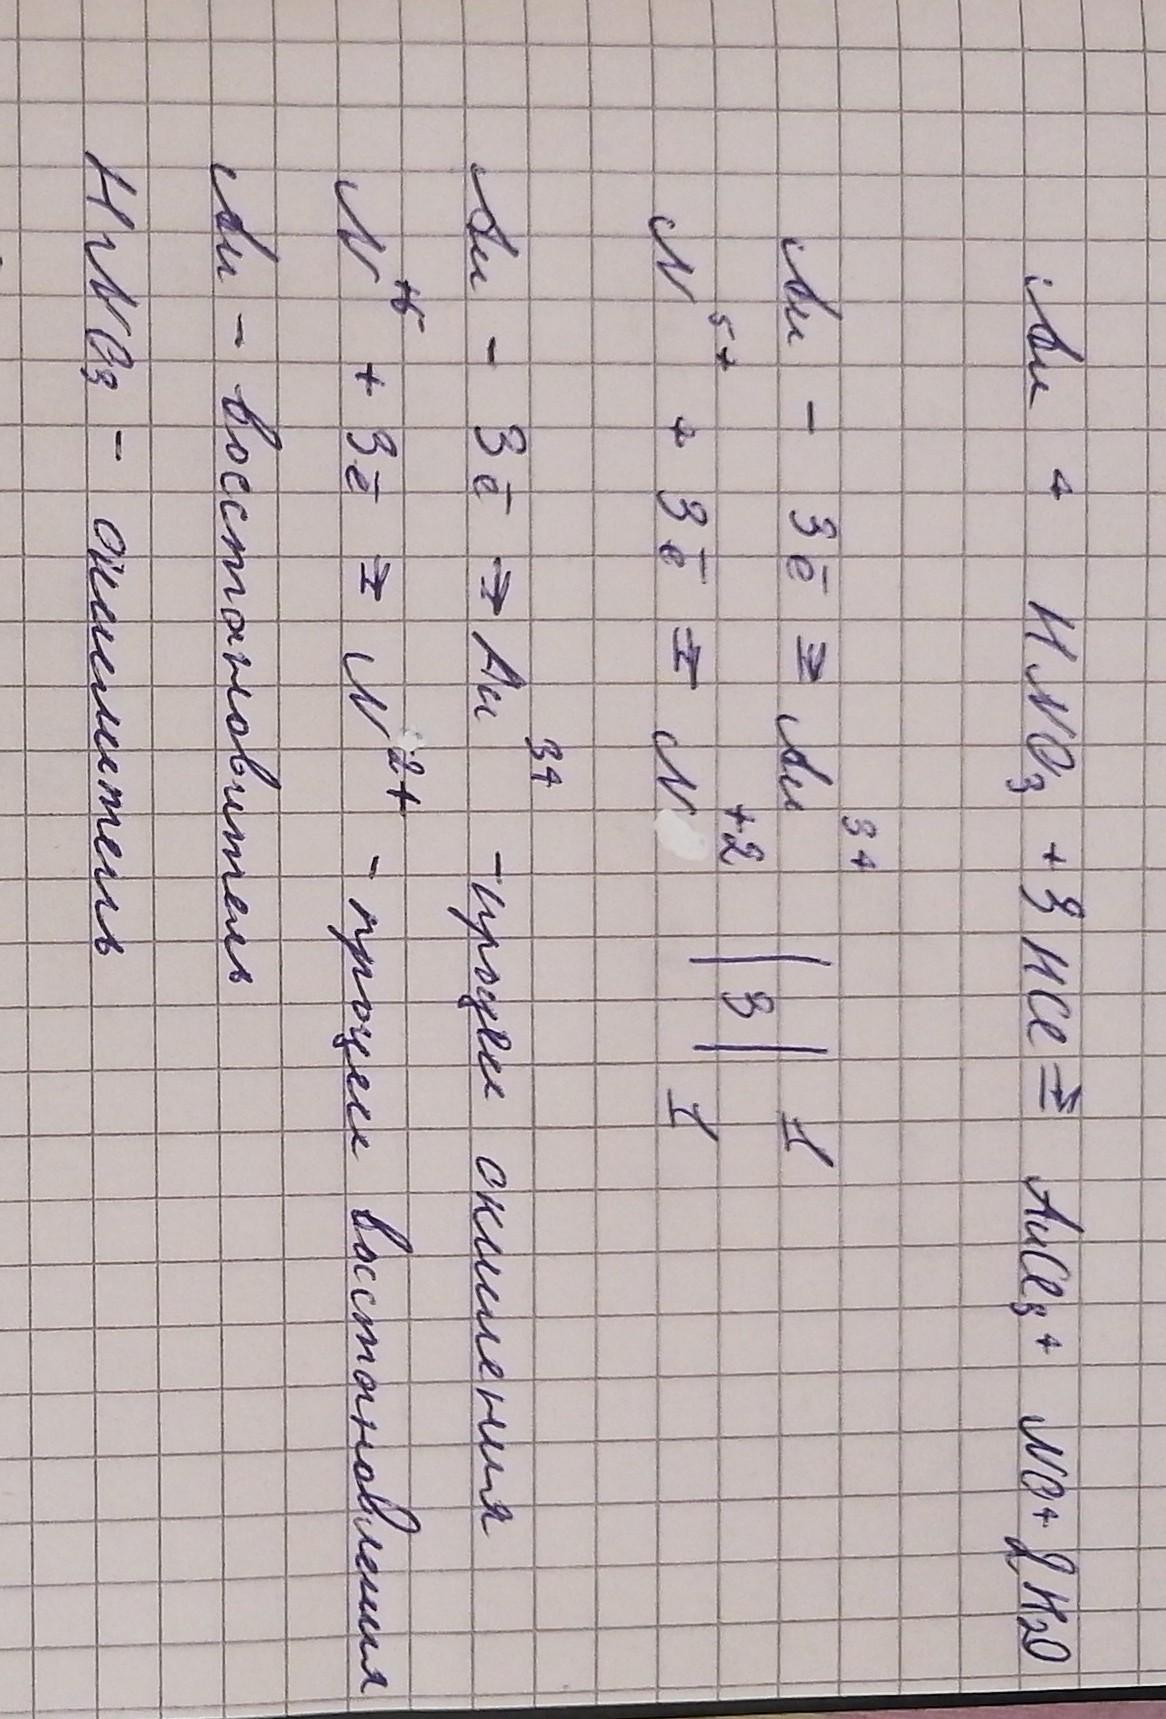 Au + HNO3 + 3HCl → AuCl3 + NO + 2H2O
Au - 3ē → Au 3+ | 3 | 1
N 5+ + 3ē → N +2 | | 1
Au - 3ē → Au 3+ - процесс окисления
N +5 + 3ē → N 2+ - процесс восстановления
Au - восстановитель
HNO3 - окислитель